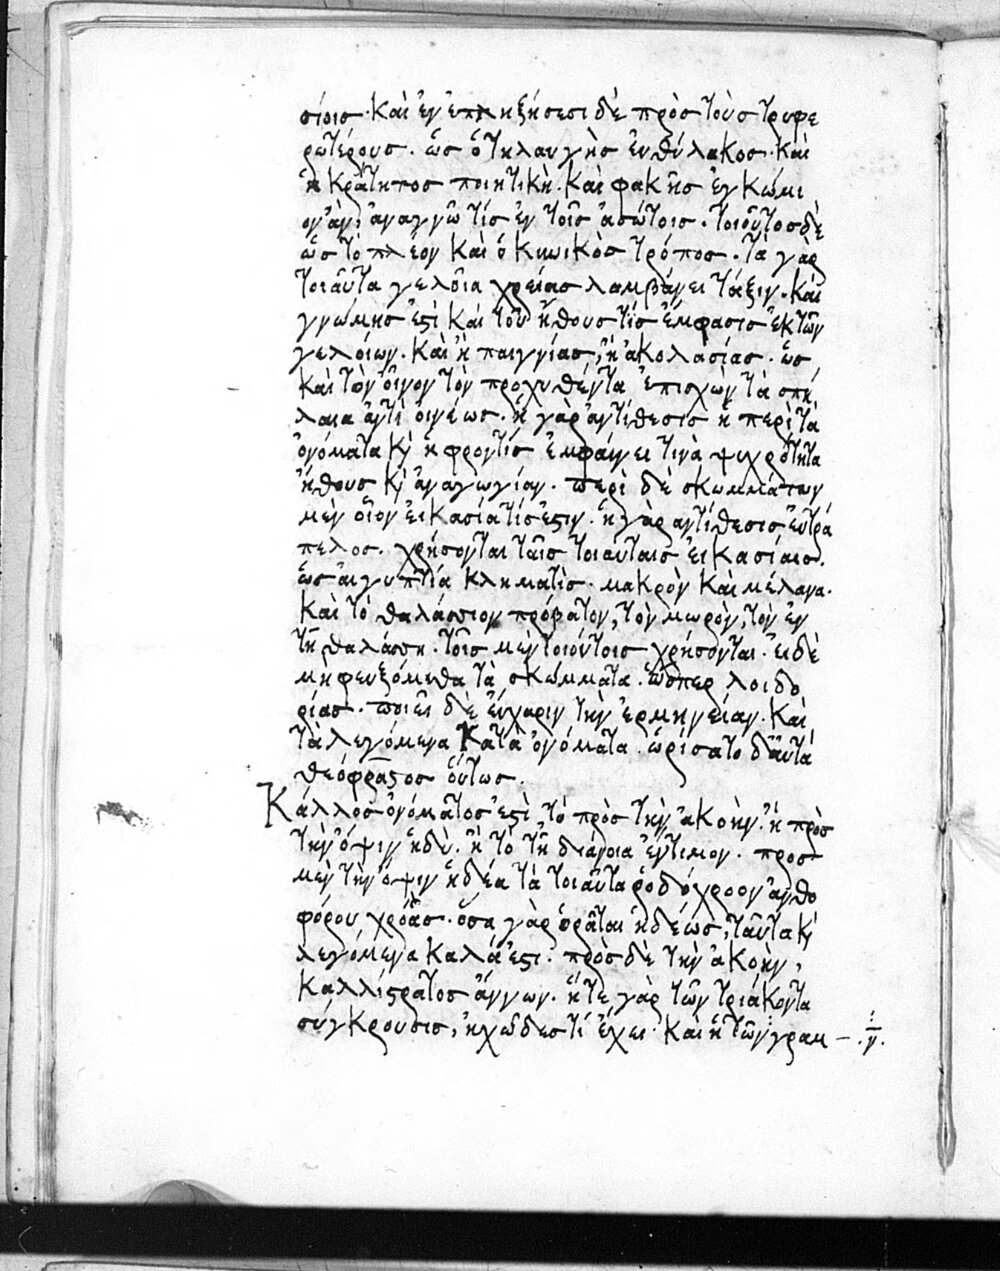 σίοις· καὶ ἐν ἐπιπλήξεσι δὲ πρὸς τοὺς τρυφε
ρωτέρους· ὡς ὁ τηλαυγὴς ἐν θύλακος· καὶ
ἡ κράτητος ποιητικὴ· καὶ φακῆς ἐγκώμι
ον ἂν, ἀναγνῶ τίς ἐν τοῖς ἀσώτοις· τοιοῦτος δὲ
ὡς τὸ πλέον καὶ ὁ κυνικὸς τρόπος· τὰ γὰρ
τοιαῦτα γελοῖα χρείας λαμβάνει τάξιν· καὶ
γνώμης ἐστὶ καὶ τοῦ ἤθους τίς ἔμφασις ἐκ τῶν
γελοίων· καὶ ἢ παιγνίας, ἢ ἀκολασίας· ὡς
καὶ τὸν οἶνον τὸν προχυθέντα ἐπισχὼν τὰ σπή
λαια ἀντὶ οἰνέως· ἡ γὰρ ἀντίθεσις ἡ περὶ τὰ
ὀνόματα κ ἡ φροντίς ἐμφαίνει τινὰ ψυχρότητα
ἤθους κ ἀναγωγίαν· περὶ δὲ σκωμμάτων
μὲν οἷον εἰκασία τίς ἐστιν· ἡ γὰρ ἀντίθεσις εὐτρά
πελος· χρήσονται ταῖς τοιαύταις εἰκασίαις·
ὡς αἰγυπτία κληματὶς· μακρὸν καὶ μέλανα·
καὶ τὸ θαλάσσιον πρόβατον, τὸν μωρὸν, τὸν ἐν
τῆ θαλάσση· τοῖς μὲν τοιούτοις χρήσονται· εἰ δὲ
μὴ φευξόμεθα τὰ σκώμματα· ὥσπερ λοιδο
ρίας· ποιεῖ δὲ εὔχαριν τὴν ἑρμηνείαν· καὶ
τὰ λεγόμενα κατὰ ὀνόματα· ὡρίσατο δ᾽ αὐτὰ
θεόφραστος οὕτως.
Κάλλος ὀνόματος ἐστὶ, τὸ πρὸς τὴν ἀκοὴν· ἢ πρὸς
τὴν ὄψιν ἡδὺ· ἢ τὸ τῆ διάνοια ἔντιμον· προς
μὲν τὴν ὄψιν ἡδέα τὰ τοιαῦτα ῥοδόχροον ἀνθο
φόρου χρόας· ὅσα γὰρ ὁρᾶται ἡδέως, ταῦτα κ
λεγόμενα καλά ἐστι· πρὸς δὲ τὴν ἀκοὴν,
καλλίστρατος ἄννων· ἥτε γὰρ τῶν τριάκοντα
σύγκρουσις, ἠχῶδες τὶ ἔχει· καὶ ἡ τῶν γραμ